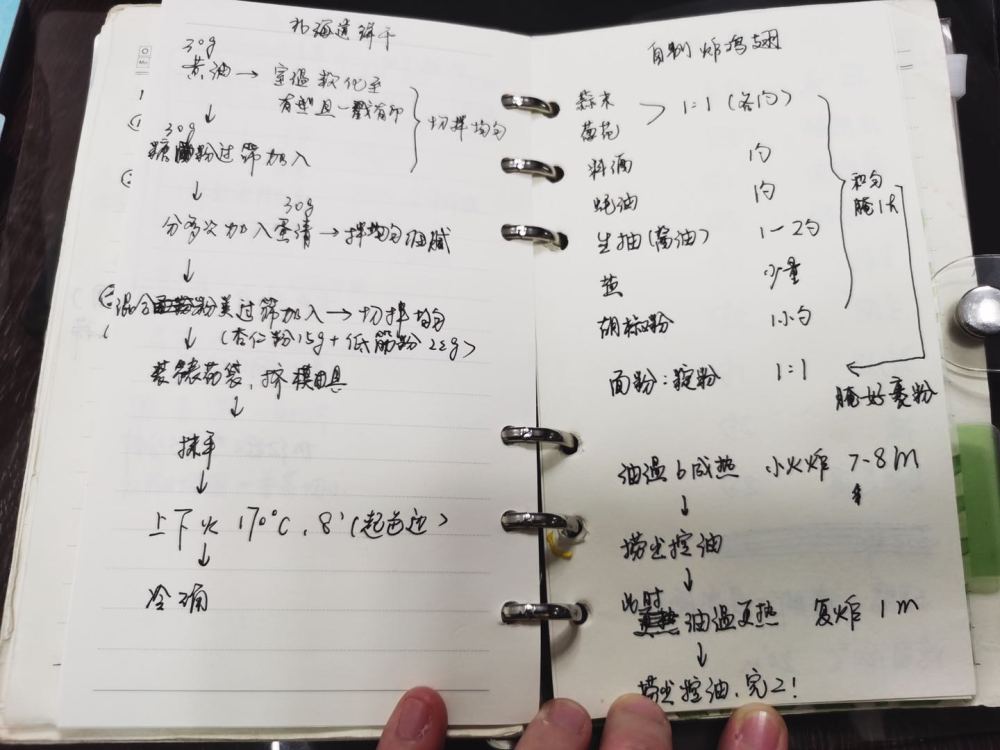 北海道饼干
30g
黄油→室温软化至
有型且一戳有印
切拌均匀
↓
30g
糖粉过筛加入
↓
30g
分多次加入蛋清→拌均匀细腻
↓
混合粉类过筛加入→切拌均匀
↓
(杏仁粉15g+低筋粉22g)
装裱花袋，挤模具
↓
抹平
↓
上下火 170°C，8'(起色边)
↓
冷确
自制炸鸡翅
蒜末
葱花
1:1(各1勺)
料酒 1勺
蚝油 1勺
生抽(酱油) 1-2勺
盐 少量
胡椒粉 1小勺
和匀
腌1h
面粉:淀粉 1:1
腌好裹粉
油温6成热 小火炸 7-8m
↓
捞出控油
↓
此时
油温更热 复炸 1m
↓
捞出控油，完工!